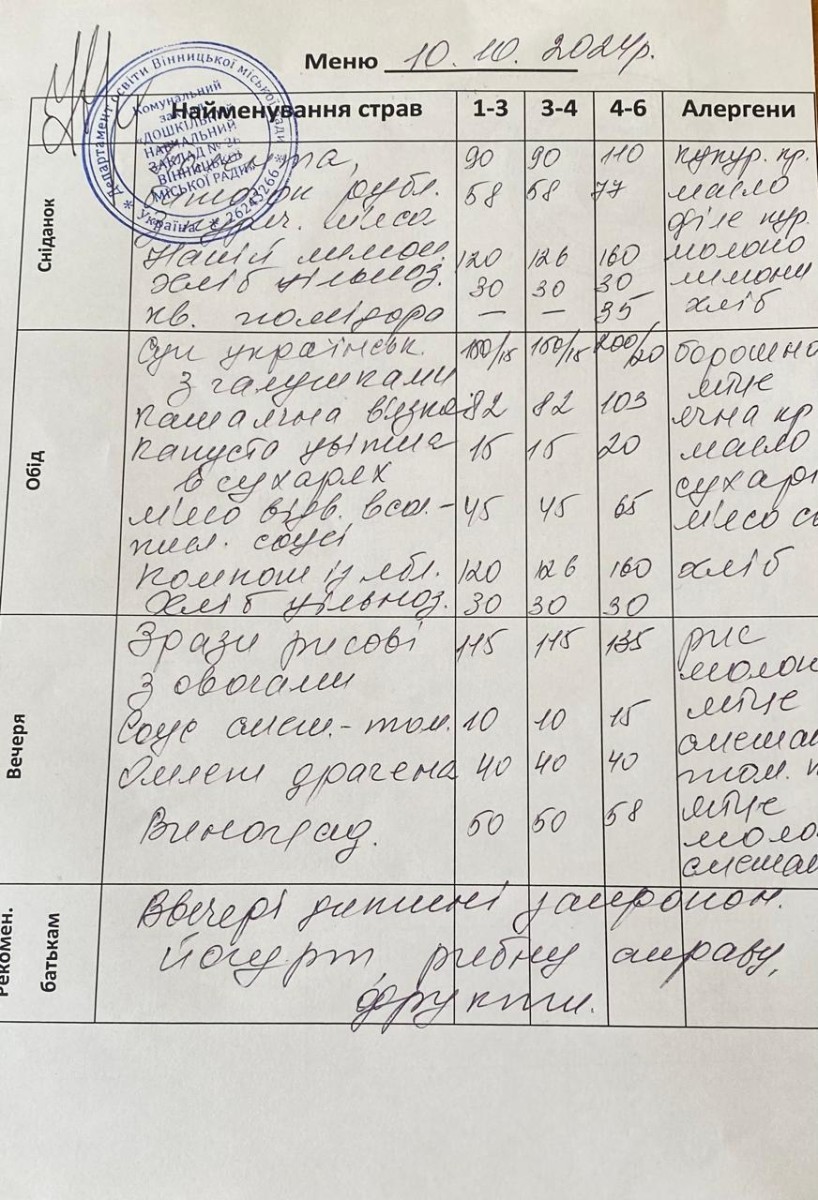 Меню 10.10.2024р.
Департамент освіти Вінницької міської ради
* Україна * 26243266 *
Комунальний
заклад
«ДОШКІЛЬНИЙ
НАВЧАЛЬНИЙ
ЗАКЛАД № 26
ВІННИЦЬКОЇ
МІСЬКОЇ РАДИ»
Найменування страв 1-3 3-4 4-6 Алергени
Сніданок
90 90 110 кукур. кр.
рубл. 58 58 77 масло
м'яса філе кур.
Напій лимон. 120 126 160 молоко
Хліб цільноз. 30 30 30 лимони
кв. помідора — — 35 хліб
Обід
Суп українськ. 150/15 150/15 200/20 борошно
з галушками яйце
Каша ячна в'язка 82 82 103 ячна кр
Капуста цвітна 15 15 20 масло
в сухарях сухарі
М'ясо відв. в см.- 45 45 65 м'ясо св
соусі
Компот із ябл. 120 126 160 хліб
Хліб цільноз. 30 30 30
Вечеря
Зрази рисові 115 115 135 рис
з овочами молок
Соус смет.-том. 10 10 15 яйце
сметан
Омлет драчена 40 40 40 том. п
Виноград. 50 50 58 яйце
моло
сметан
Рекомен.
батькам
Ввечері дитині запропон.
йогурт, рибну страву,
фрукти.